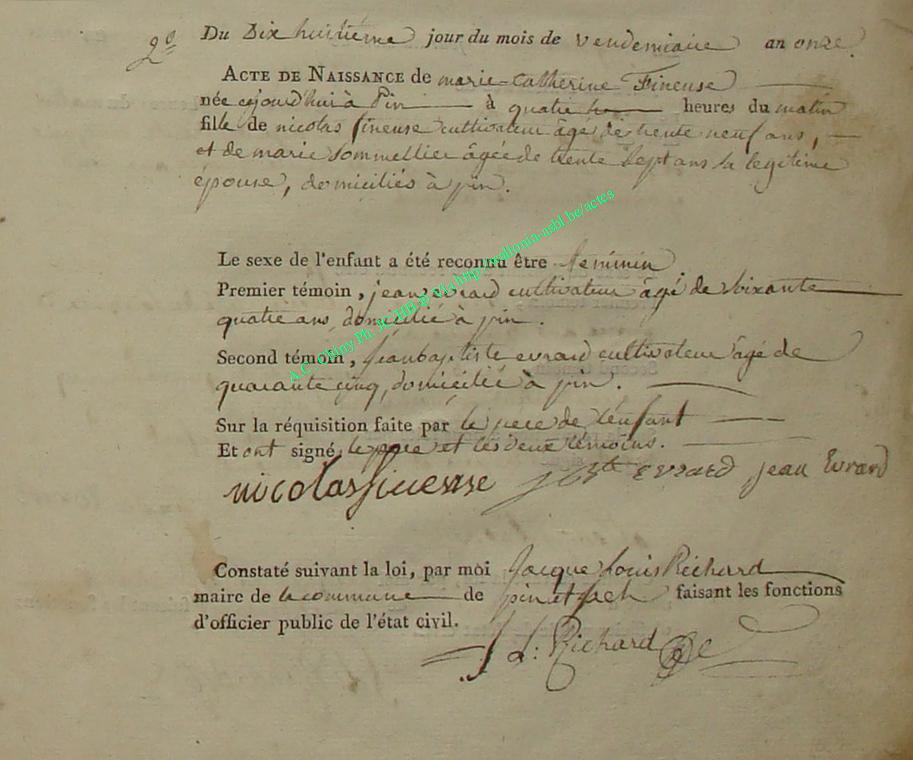 2º Du Dix huitieme jour du mois de Vendemiaire an onze.
ACTE DE NAISSANCE de marie-Catherine Fineuse
née cejourd'hui à Pin à quatre heures du matin
fille de nicolas fineuse cultivateur âgé de trente neuf ans,
et de marie Sommellier âgée de trente Sept ans sa legitime
épouse, domiciliés à pin.
Le sexe de l'enfant a été reconnu être feminin
Premier témoin, jean evrard cultivateur âgé de soixante
quatre ans, domicilié à pin.
Second témoin, jean baptiste evrard cultivateur âgé de
quarante cinq, domicilié à pin.
Sur la réquisition faite par le pere de l'enfant
Et ont signé, le pere et les deux témoins.
nicolas fineuse J Bte evrard jean Evrard
Constaté suivant la loi, par moi Jacque Louis Richard
maire de la commune de pin et faisant les fonctions
d'officier public de l'état civil.
J L: Richard
A.C. Chiny Ph. http://wallonia-asbl.be/actes